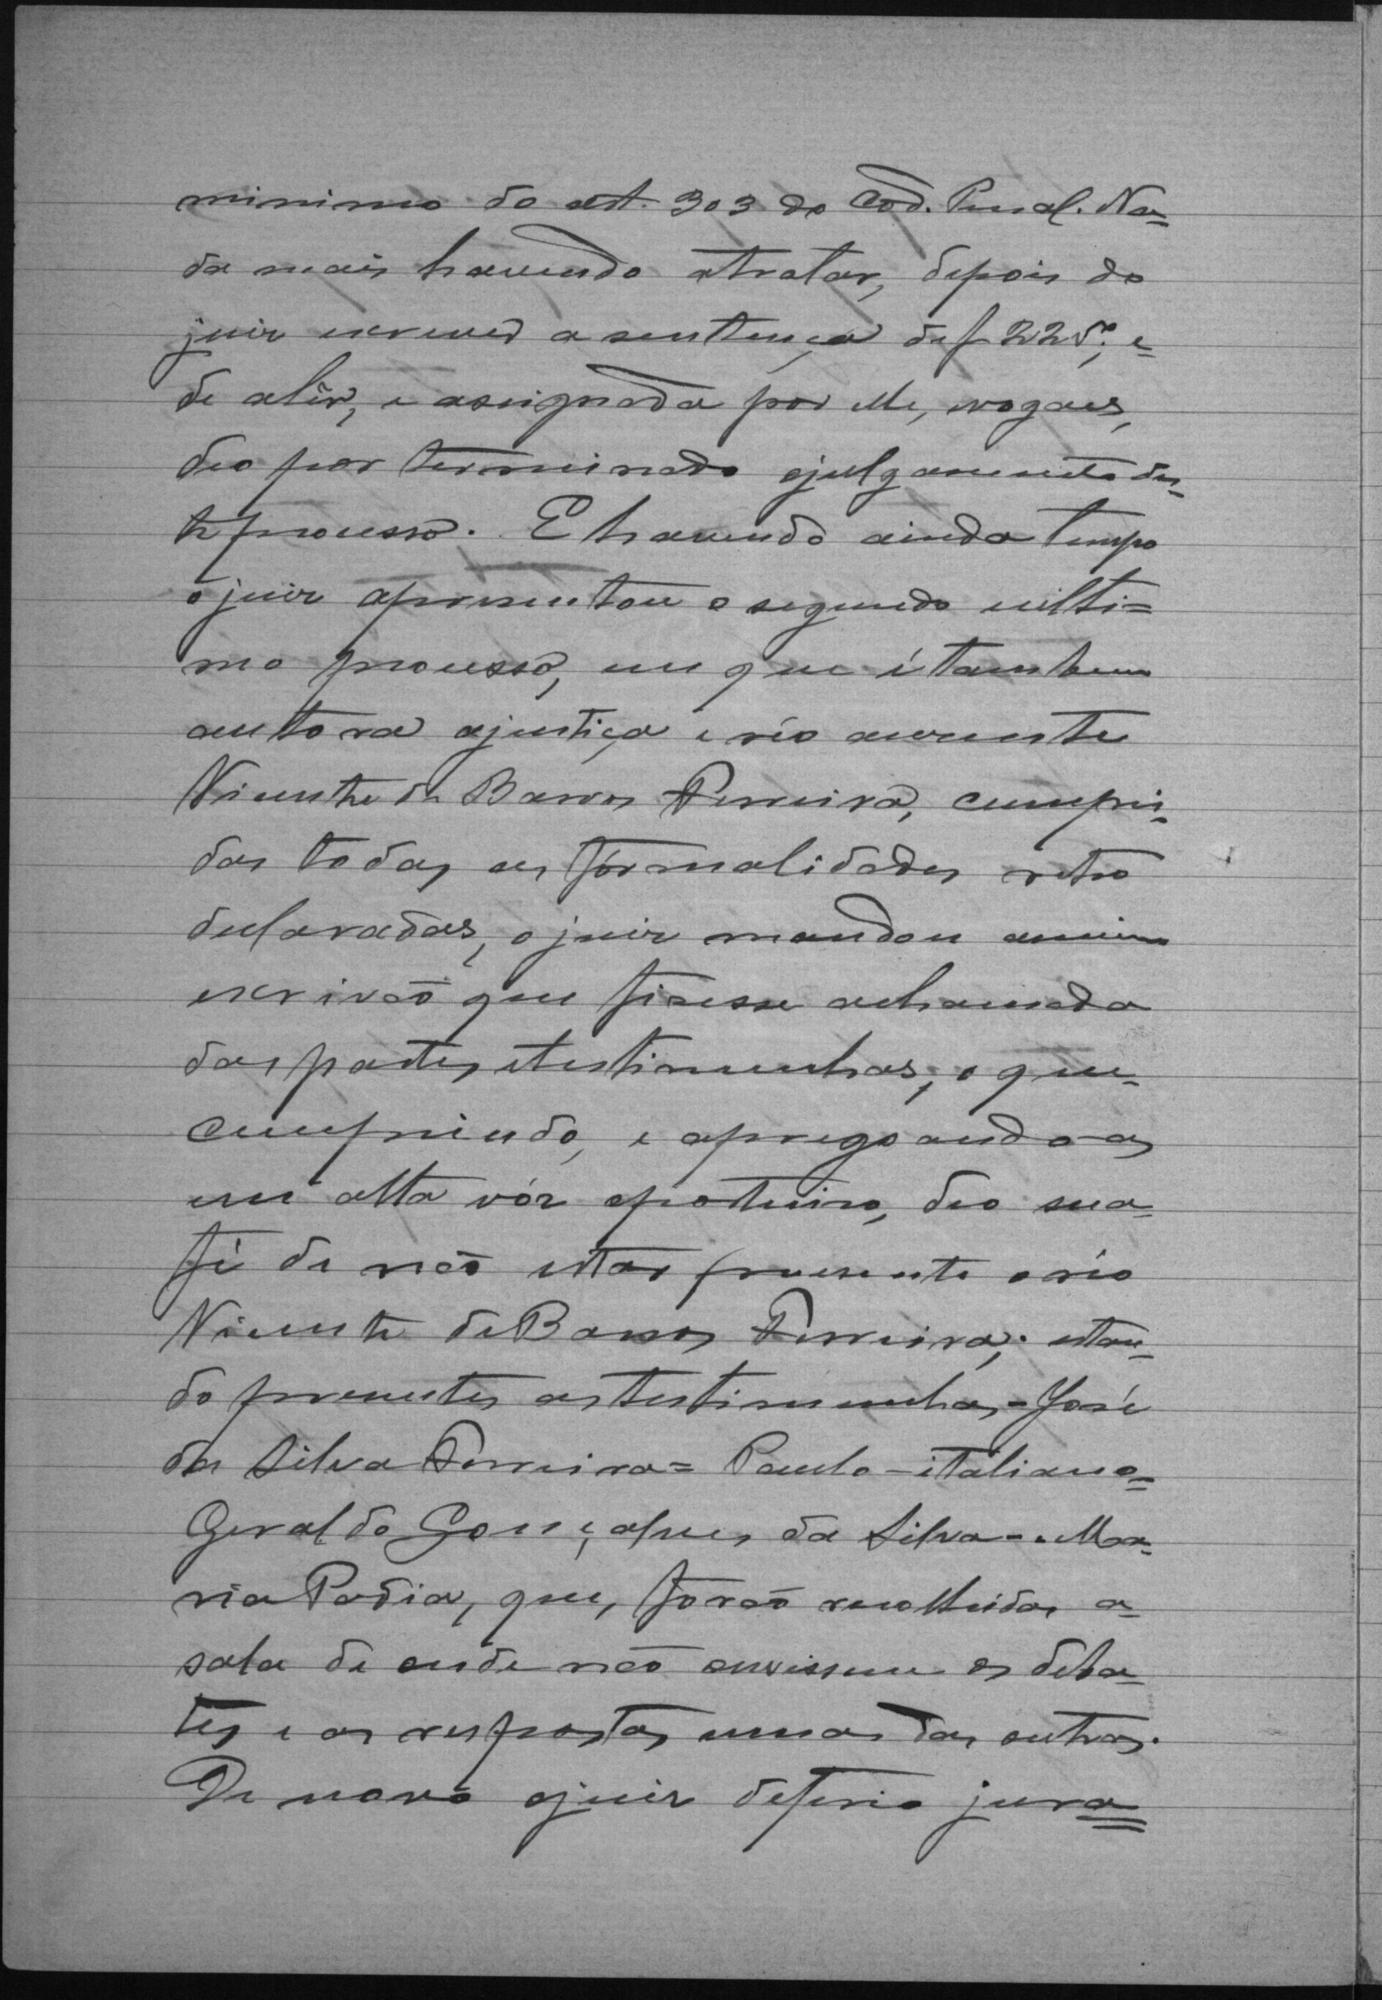 minimo do art. 303 do Cod. Penal. Na=
da mais havendo atratar, depois do
juiz escrever a sentença de f 22 vº, e
de a lêr, e assignada por elle, vogaes,
deo por terminado ojulgamento des=
te processo. E havendo ainda tempo
o juiz apresentou o segundo eulti=
mo processo, em que é tambem
autora ajustiça e réo auzente
Vicente de Barros Ferreira, cumpri=
das todas as formalidades retro
declaradas, o juiz mandou amim
escrivão que fizesse achamada
das partes etestimunhas, o que
cumprindo, e apregoando-as
em alta vóz oporteiro, deo sua
fé de não estar presente oréo
Vicente de Barros Ferreira, estan=
do presentes as testimunhas = José
da Silva Ferreira = Paulo - italiano =
Geraldo Gonçalves da Silva - Ma=
ria Padia, que, forão recolhidas a
sala de onde não ouvissem os deba=
tes e as respostas umas das outras.
De novo ojuiz deferio jura=